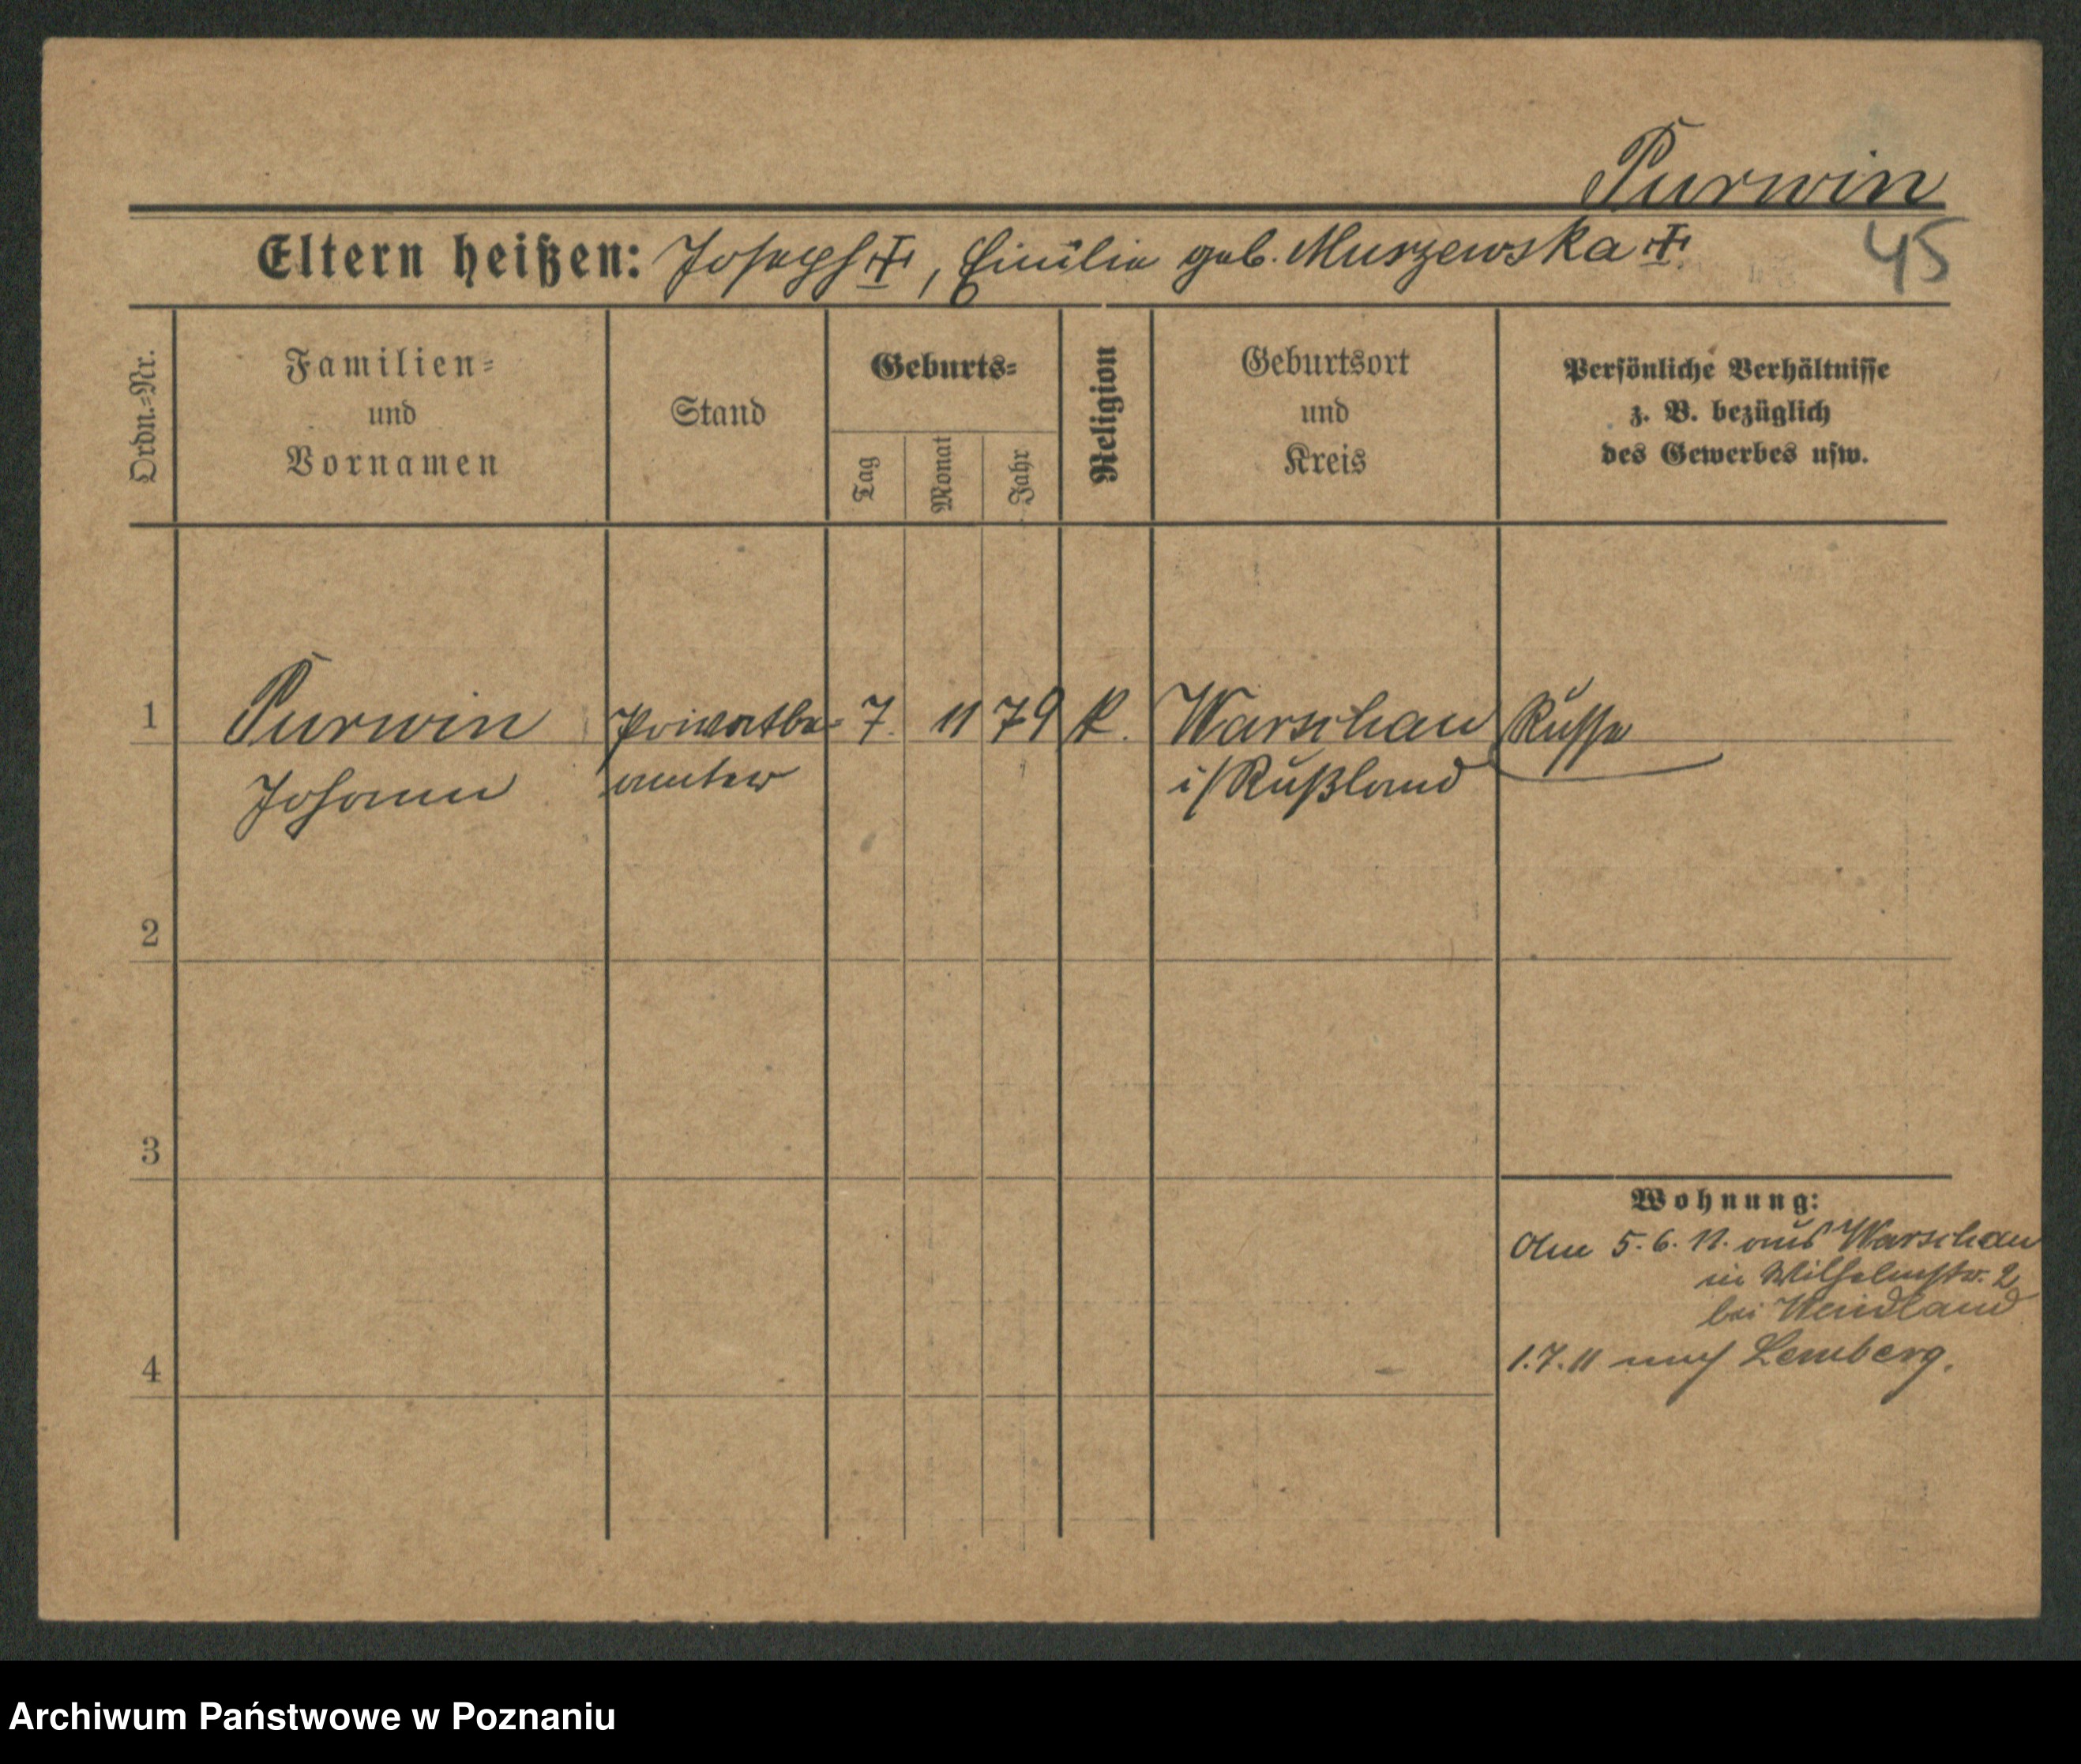 Purwin
Eltern heißen: Joseph ✝, Emilie geb. Murzewska ✝.
45
Ordn.=Nr.
Familien=
und
Vornamen
Stand
Geburts=
Tag
Monat
Jahr
Religion
Geburtsort
und
Kreis
Persönliche Verhältnisse
z. B. bezüglich
des Gewerbes usw.
1 Purwin Privatbe= 7. 11 79 k. Warschau Russe
Johann amter i/Rußland
2
3
Wohnung:
5. 6. 11. aus Warschau
in Wilhelmstr. 2
bei Wendland
4 1.7.11 nach Lemberg.
Archiwum Państwowe w Poznaniu